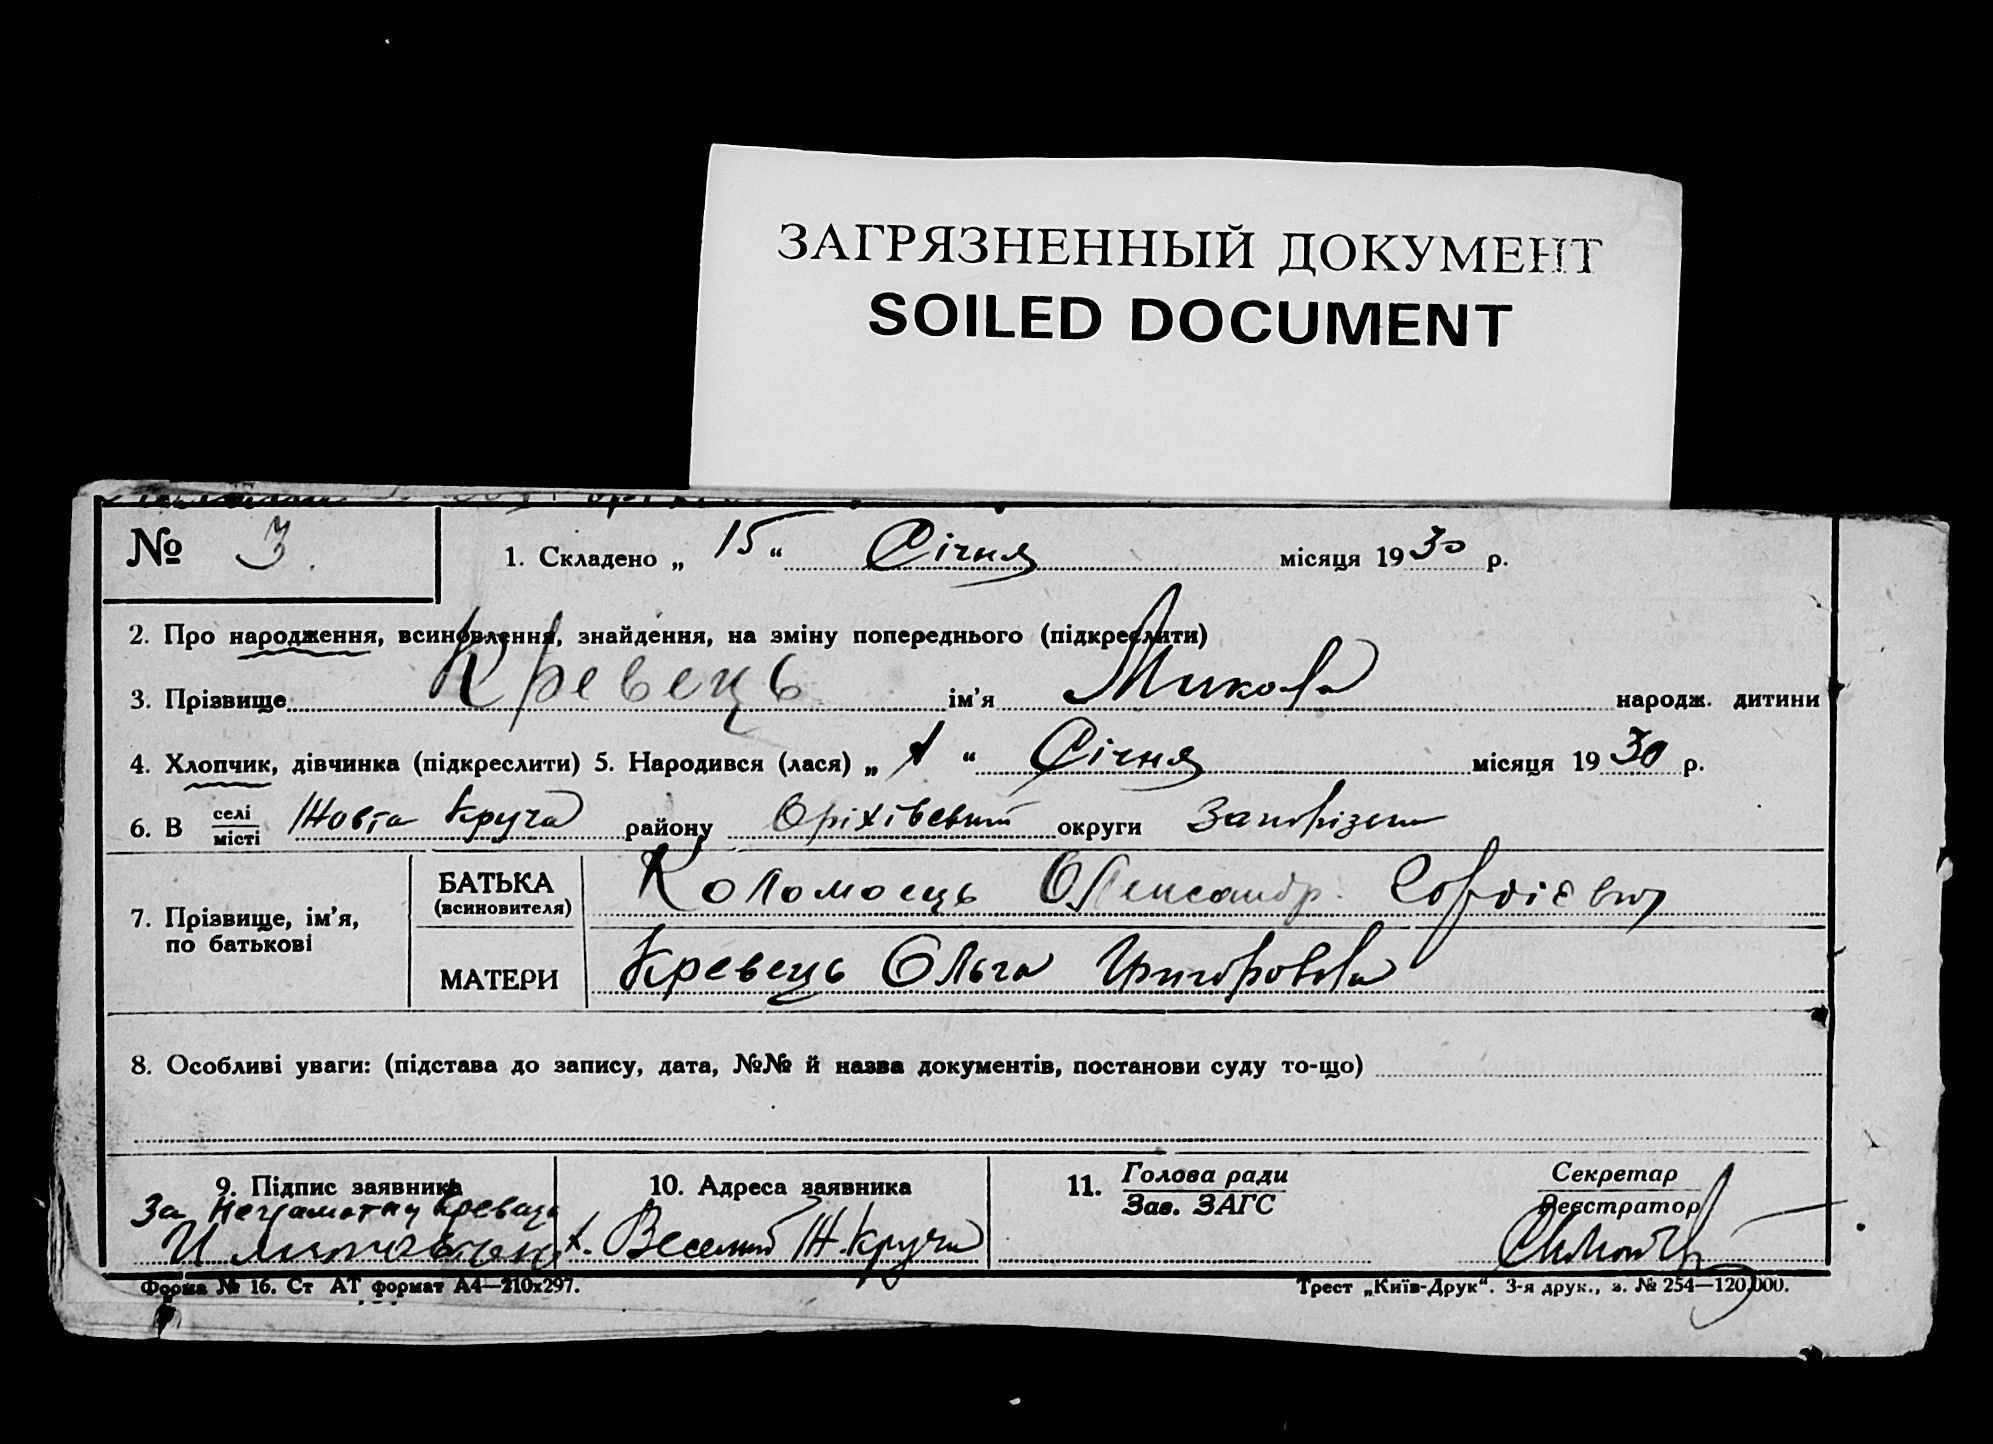 ЗАГРЯЗНЕННЫЙ ДОКУМЕНТ
SOILED DOCUMENT
№ 3. 1. Складено „ 15 “ Січня місяця 1930 р.
2. Про народження, всиновлення, знайдення, на зміну попереднього (підкреслити)
3. Прізвище Кревець ім’я Микола народж. дитини
4. Хлопчик, дівчинка (підкреслити) 5. Народився (лася) „ “ Січня місяця 1930 р.
6. В селі
місті Жовта Круча району Оріхівський округи Запорізьк
7. Прізвище, ім’я,
по батькові
БАТЬКА
(всиновителя) Коломоєць Олександр.
МАТЕРИ Кревець Ольга Григоровна
8. Особливі уваги: (підстава до запису, дата, №№ й назва документів, постанови суду то-що)
9. Підпис заявника
За Неграмотну Кревець
10. Адреса заявника
х. Веселий Ж.Круча
11. Голова ради
Зав. ЗАГС
Секретар
Реєстратор
Форма № 16. Ст АТ формат А4—210х297.
Трест „Київ-Друк“. 3-я друк., з. № 254—120,000.